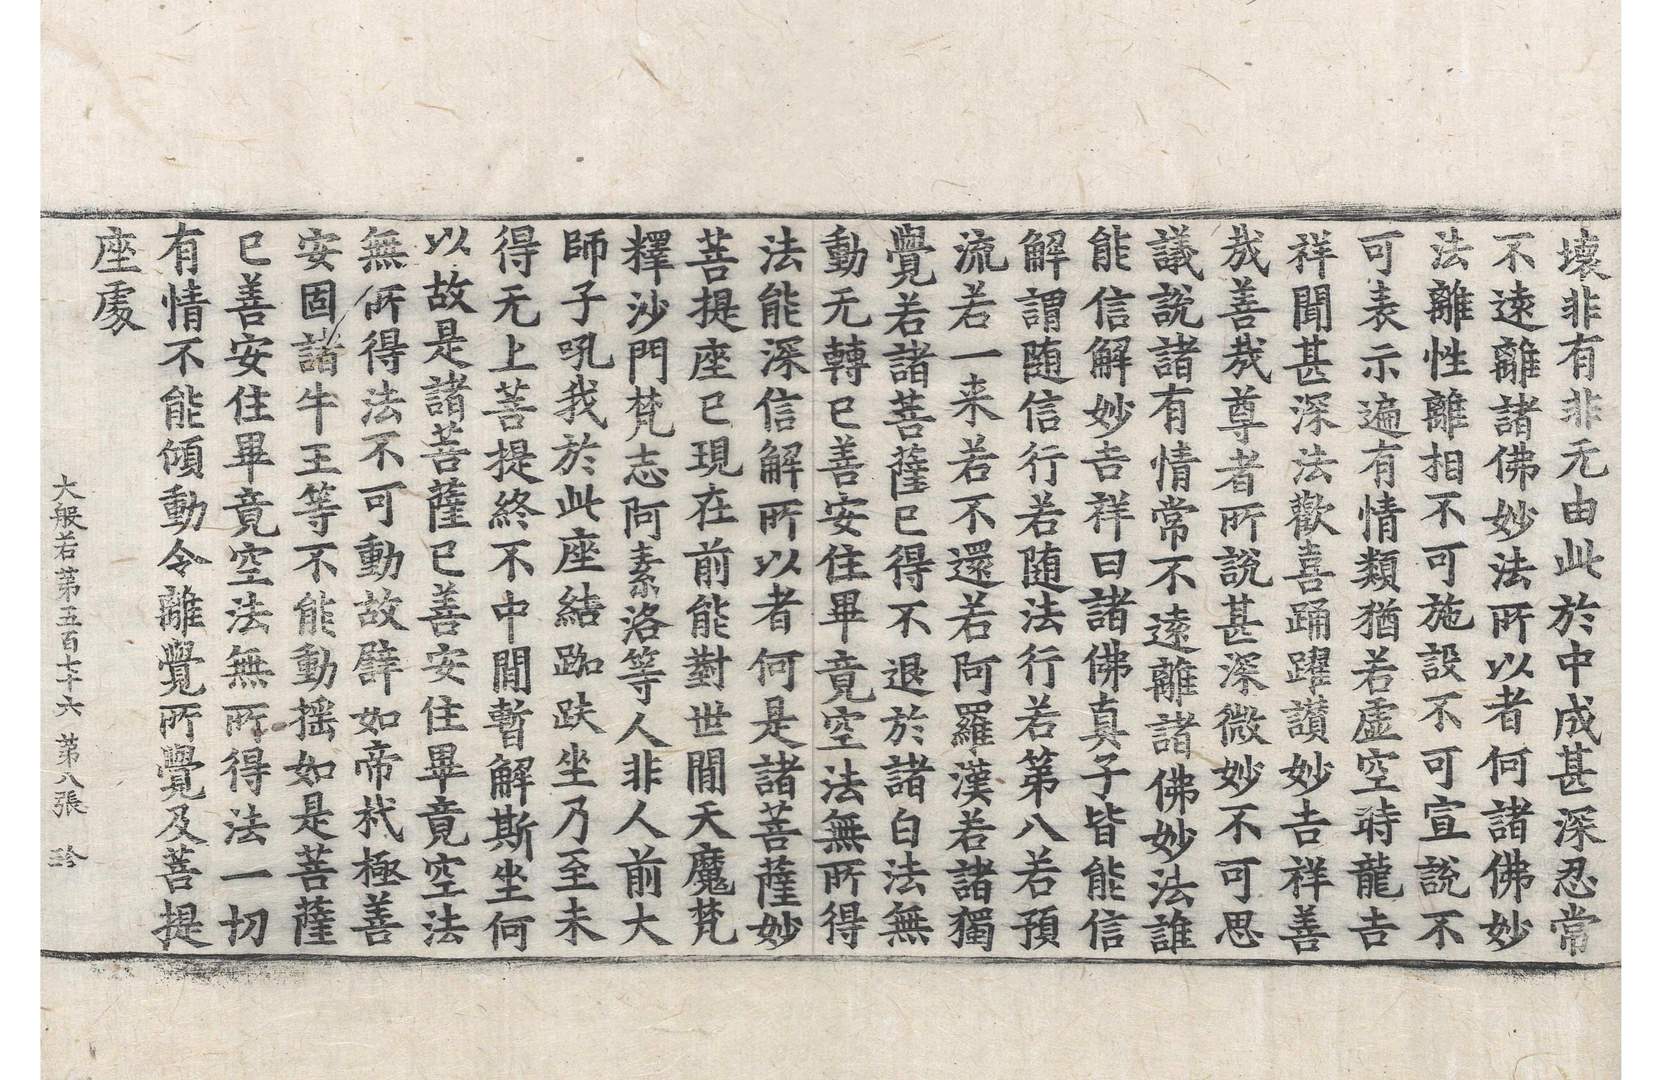 壊非有非无由此於中成甚深忍常
不遠離諸佛妙法所以者何諸佛妙
法離性離相不可施設不可宣說不
可表示遍有情類猶若虛空時龍吉
祥聞甚深法歡喜踊躍讃妙吉祥善
㢤善㢤尊者所說甚深微妙不可思
議說諸有情常不遠離諸佛妙法誰
能信解妙吉祥曰諸佛真子皆能信
解謂随信行若随法行若第八若預
流若一来若不還若阿羅漢若諸獨
覺若諸菩薩已得不退於諸白法無
動无轉已善安住畢竟空法無所得
法能深信解所以者何是諸菩薩妙
菩提座已現在前能對世間天魔梵
釋沙門梵志阿素洛等人非人前大
師子吼我於此座結跏趺坐乃至未
得无上菩提終不中間暫解斯坐何
以故是諸菩薩已善安住畢竟空法
無所得法不可動故譬如帝杙極善
安固諸牛王等不能動搖如是菩薩
已善安住畢竟空法無所得法一切
有情不能傾動令離覺所覺及菩提
座處
大般若第五百七十六 第八張 珎